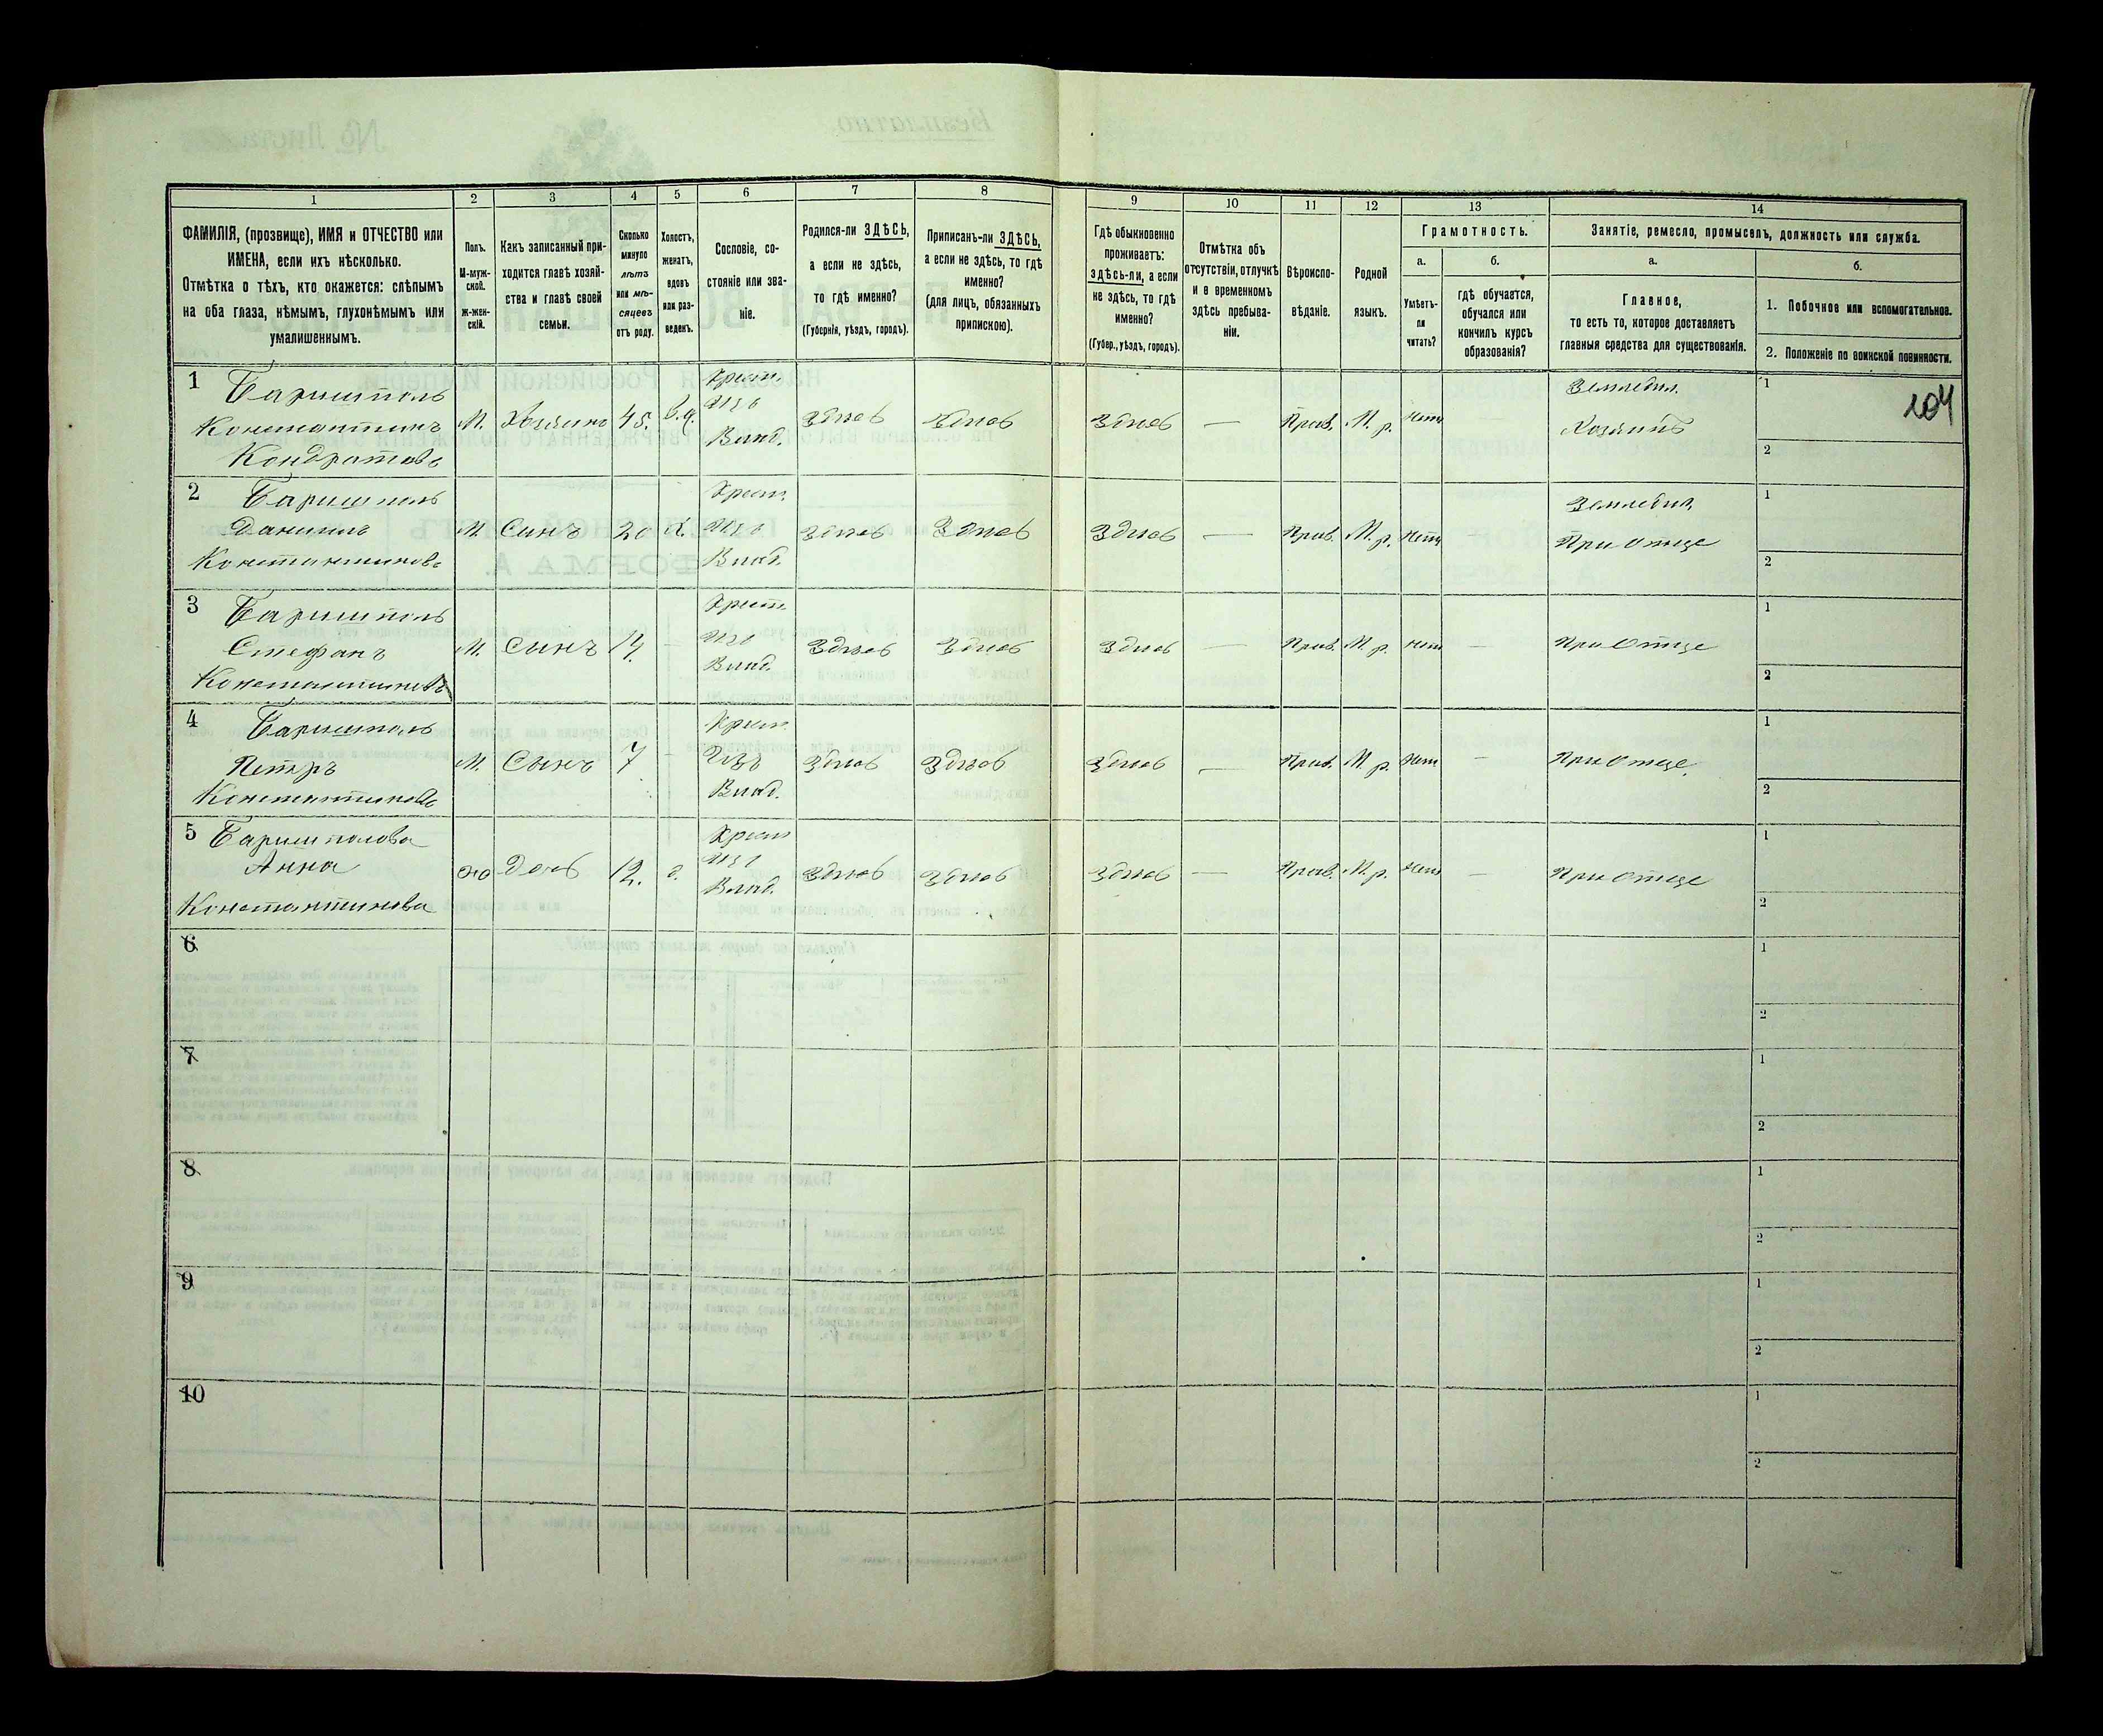 1 2 3 4 5 6 7 8 9 10 11 12 13 14
ФАМИЛІЯ, (прозвище), ИМЯ и ОТЧЕСТВО или
ИМЕНА, если ихъ нѣсколько.
Отмѣтка о тѣхъ, кто окажется: слѣпымъ
на оба глаза, нѣмымъ, глухонѣмымъ или
умалишеннымъ.
Полъ.
М-муж-
ской.
Ж-жен-
скій.
Какъ записанный при-
ходится главѣ хозяй-
ства и главѣ своей
семьи.
Сколько
минуло
лѣтъ
или мѣ-
сяцевъ
отъ роду.
Холостъ,
женатъ,
вдовъ
или раз-
веденъ.
Сословіе, со-
стояніе или зва-
ніе.
Родился-ли ЗДѢСЬ,
а если не здѣсь,
то гдѣ именно?
(Губернія, уѣздъ, городъ).
Приписанъ-ли ЗДѢСЬ,
а если не здѣсь, то гдѣ
именно?
(для лицъ, обязанныхъ
припискою).
Гдѣ обыкновенно
проживаетъ:
здѣсь-ли, а если
не здѣсь, то гдѣ
именно?
(Губер., уѣздъ, городъ).
Отмѣтка объ
отсутствіи, отлучкѣ
и о временномъ
здѣсь пребыва-
ніи.
Вѣроиспо-
вѣданіе.
Родной
языкъ.
Грамотность.
а.
Умѣетъ-
ли
читать?
б.
гдѣ обучается,
обучался или
кончилъ курсъ
образованія?
Занятіе, ремесло, промыселъ, должность или служба.
а.
Главное,
то есть то, которое доставляетъ
главныя средства для существованія.
б.
1. Побочное или вспомогательное.
2. Положеніе по воинской повинности.
104
1 Баришполь Крест. Земледѣл. 1
Константинъ М. Хозяинъ 45. Изъ Здѣсь Здѣсь Здѣсь — Прав. М. р. Нетъ — Хозяинъ
Кондратовъ Влад. 2
2 Баришполь Крест. Земледѣл. 1
Даниилъ М. Сынъ 20 Х. Изъ Здѣсь Здѣсь Здѣсь — Прав. М. р. Нетъ При Отце
Константиновъ Влад. 2
3 Баришполь Крест. 1
Стефанъ М. Сынъ 14. — Изъ Здѣсь Здѣсь Здѣсь — Прав. М. р. Нетъ — При Отце
Константиновъ Влад. 2
4 Баришполь Крест. 1
Петръ М. Сынъ 7 — Изъ Здѣсь Здѣсь Здѣсь — Прав. М. р. Нетъ — При Отце.
Константиновъ Влад. 2
5 Баришполова Крест. 1
Анна Ж Дочь 12. д. Изъ Здѣсь Здѣсь Здѣсь — Прав. М. р. Нетъ — При Отце
Константинова Влад. 2
6 1
2
7 1
2
8 1
2
9 1
2
10 1
2